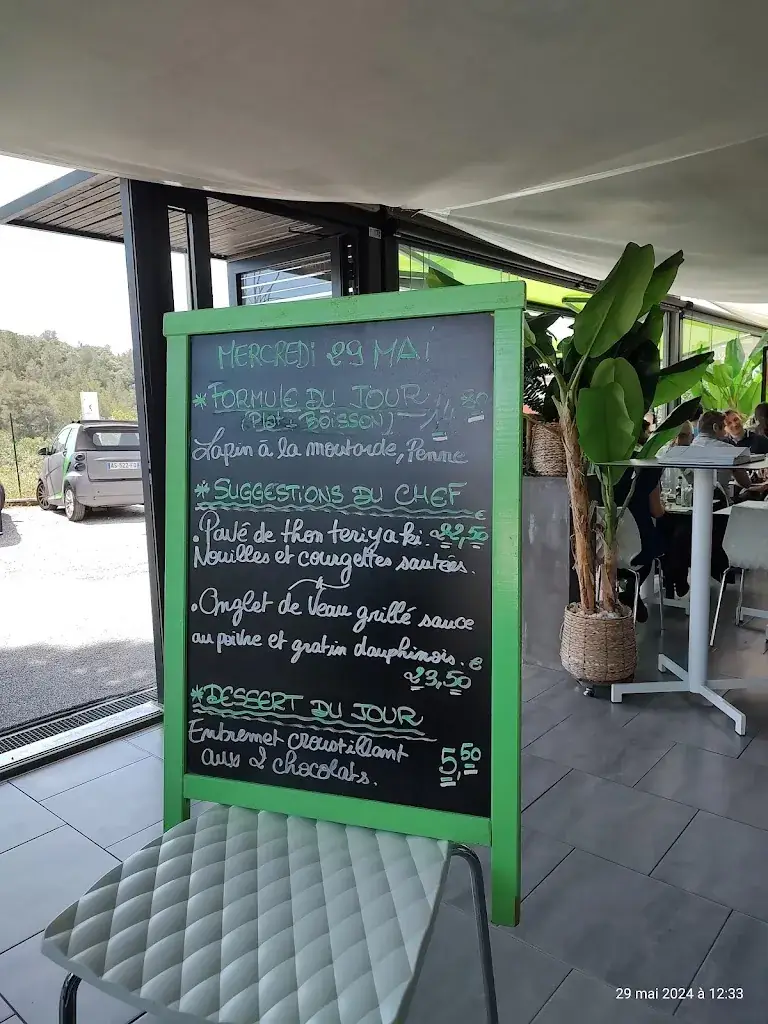 MERCREDI 29 MAI
* FORMULE DU JOUR
(Plat + BOISSON)
Lapin à la moutarde, Penne
* SUGGESTIONS DU CHEF
. Pavé de thon teriyaki. 22,50 €
Nouilles et courgettes sautées.
. Onglet de Veau grillé sauce
au poivre et gratin dauphinois. €
23,50
* DESSERT DU JOUR
Entremet croustillant
aux 2 chocolats. 5,50
29 mai 2024 à 12:33